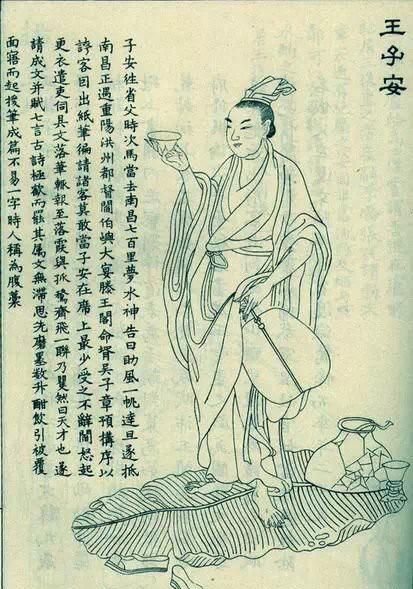 王子安
子安往省父時次馬當去南昌七百里夢水神告曰助風一帆達旦遂抵
南昌正遇重陽洪州都督閻伯嶼大宴滕王閣命壻吳子章預構序以
誇客因出紙筆徧請諸客莫敢當子安在席上最少受之不辭閻怒起
更衣遣吏伺其文落筆輒報至落霞與孤鶩齊飛一聯乃矍然曰天才也遂
請成文並賦七言古詩極歡而罷其屬文無滯思先磨墨數升酣飲引被覆
面寤而起援筆成篇不易一字時人稱為腹藁